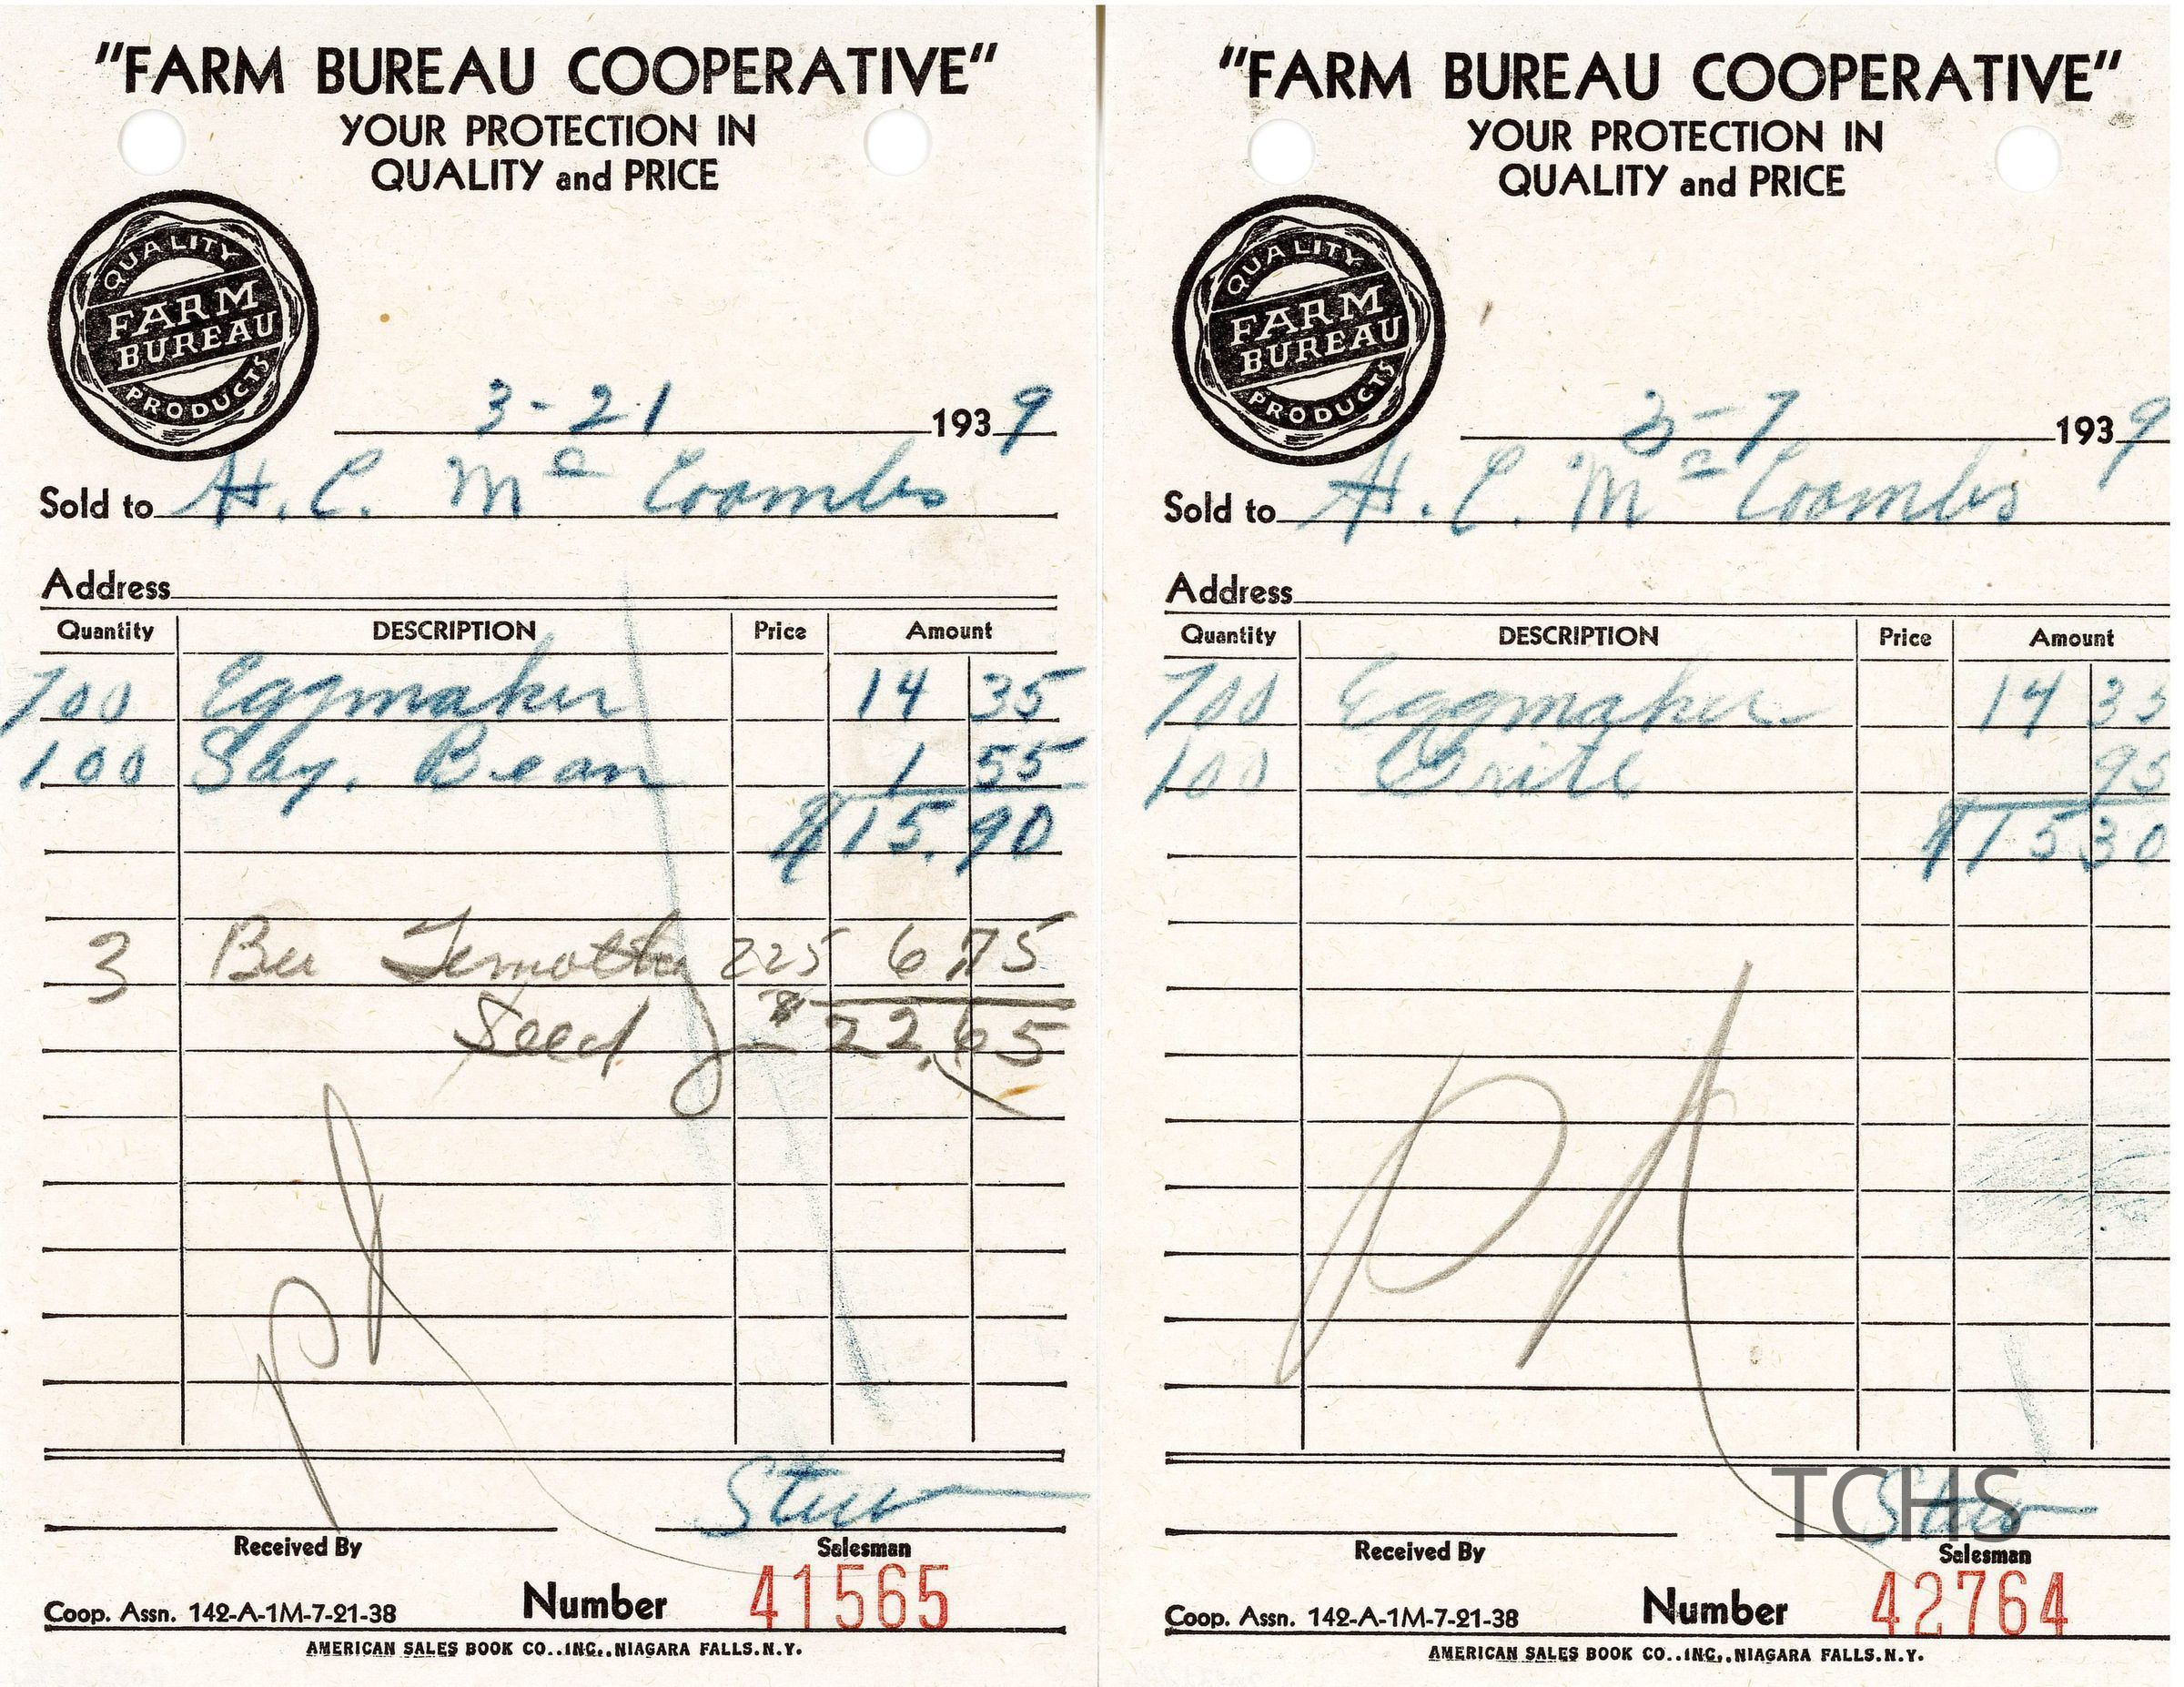 "FARM BUREAU COOPERATIVE"
YOUR PROTECTION IN
QUALITY and PRICE
QUALITY
FARM
BUREAU
PRODUCTS
3-21 1939
Sold to H. C. Mc Coombs
Address
Quantity DESCRIPTION Price Amount
700 Eggmaker 14 35
100 Soy. Bean 1 55
$15.90
3 Bu Temothy 225 6 75
Seed $22.65
Received By
Stew
Salesman
Coop. Assn. 142-A-1M-7-21-38 Number 41565
AMERICAN SALES BOOK CO., INC., NIAGARA FALLS, N.Y.
"FARM BUREAU COOPERATIVE"
YOUR PROTECTION IN
QUALITY and PRICE
QUALITY
FARM
BUREAU
PRODUCTS
3-7 1939
Sold to H. C. Mc Coombs
Address
Quantity DESCRIPTION Price Amount
700 Eggmaker 14 35
100 Grit 95
$15 30
Received By
Stew
Salesman
TCHS
Coop. Assn. 142-A-1M-7-21-38 Number 42764
AMERICAN SALES BOOK CO., INC., NIAGARA FALLS, N.Y.